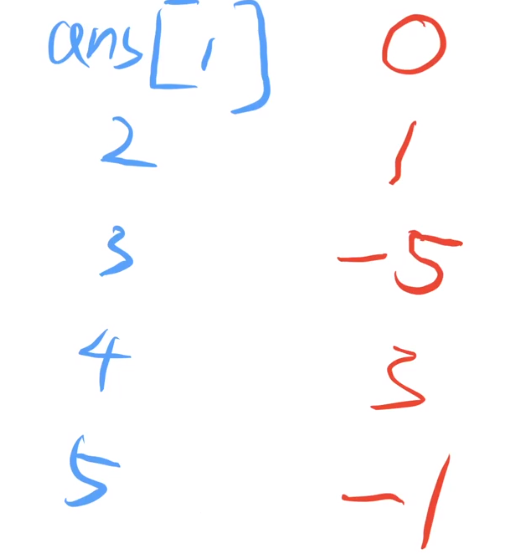 ans[1] 0
2 1
3 -5
4 3
5 -1